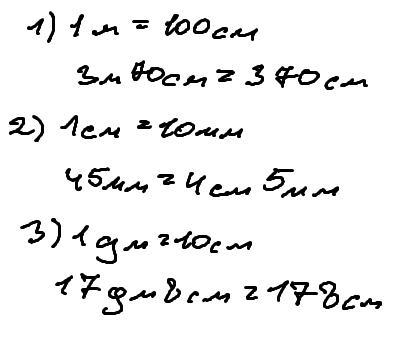 1) 1 м = 100см
3м 70см = 370 см
2) 1см = 10мм
45мм = 4см 5мм
3) 1 дм = 10см
17дм 8см = 178см